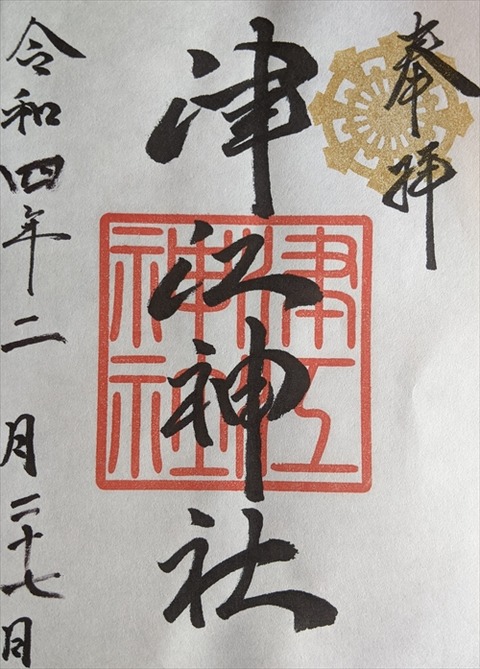 奉拝
津江神社
津江神社
令和四年二月二十七日